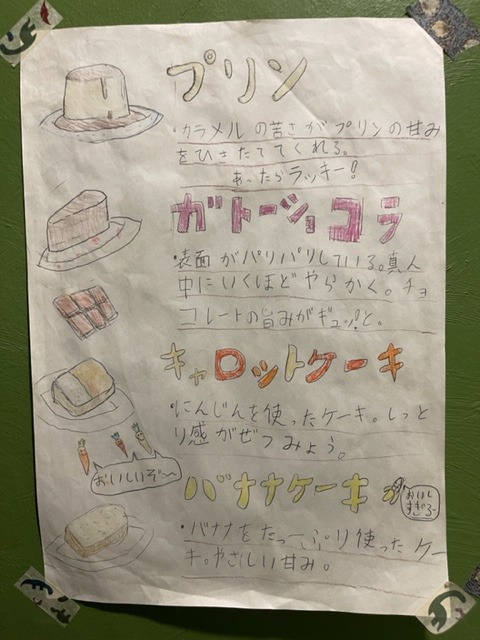 プリン
・カラメルの苦さがプリンの甘み
をひきたててくれる。
あったらラッキー!
ガトーショコラ
・表面がパリパリしている。真ん
中にいくほどやらかく。チョ
コレートの旨みがギュッ!と。
キャロットケーキ
・にんじんを使ったケーキ。しっと
り感がぜつみょう。
おいしいぞ〜
バナナケーキ
おいし
すぎる〜
・バナナをたーっぷり使ったケー
キ。やさしい甘み。